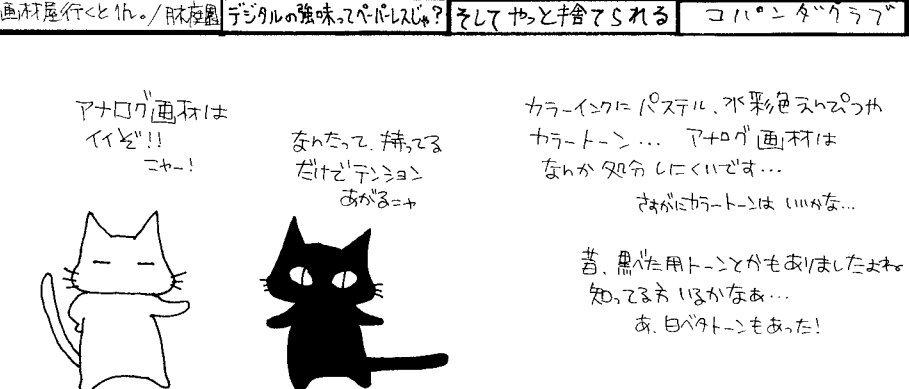 画材屋行くと1h。/月木庭園
デジタルの強味ってペーパーレスじゃ?
そしてやっと捨てられる
コパンダクラブ
アナログ画材は
イイぞ!!
ニャー!
なんたって、持ってる
だけでテンション
あがるニャ
カラーインクにパステル、水彩色えんぴつや
カラートーン… アナログ画材は
なんか処分しにくいです…
さすがにカラートーンは いいかな…
昔、黒ベタ用トーンとかもありましたよね
知ってる方 いるかなぁ…
あ、白ベタトーンもあった!